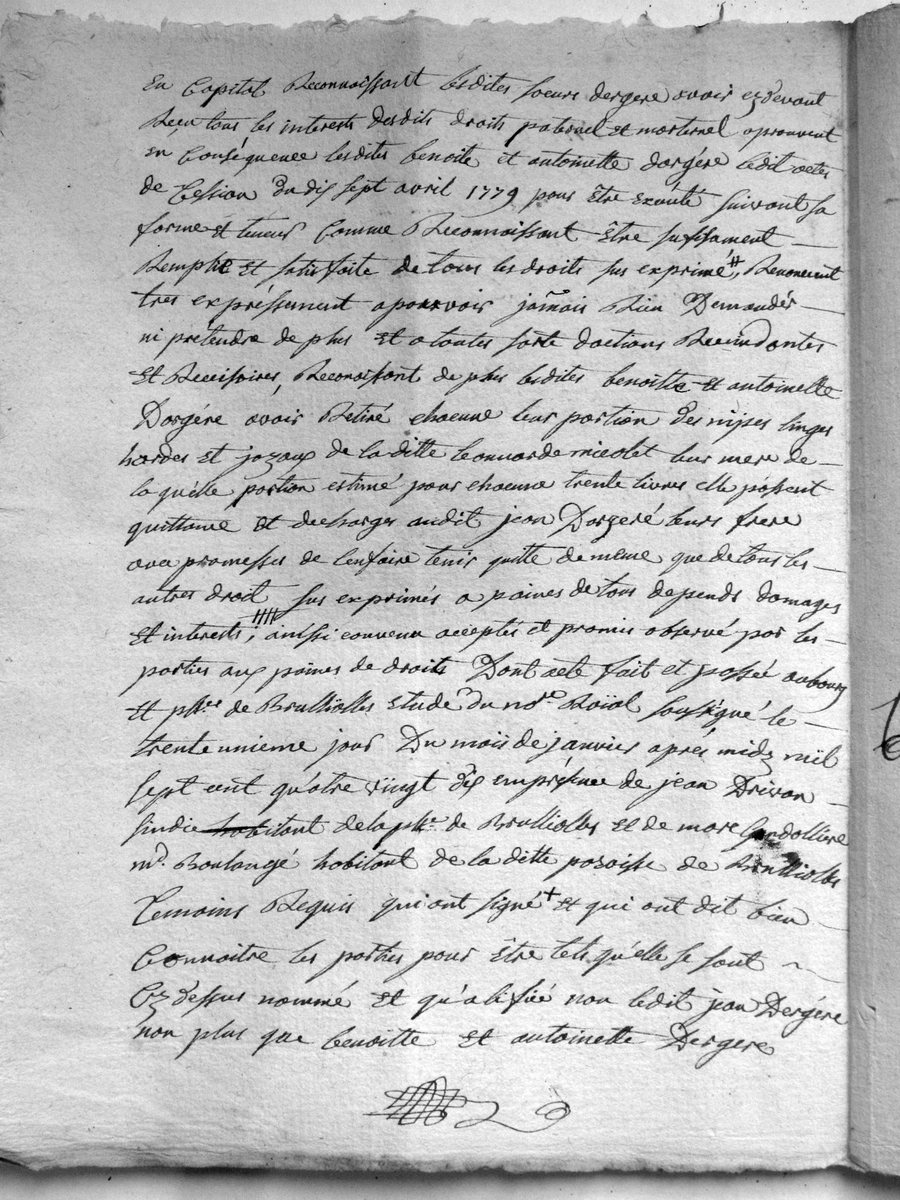 En Capital Reconnoissant lesdites soeurs dergere avoir cydevant
Recu tous les interests desdits droits paternel et maternel aprouvent
En Conséquence lesdites benoite et antoinette dargére ledit actes
de Cession du dix sept avril 1779 pour être exécuté suivant sa
forme et teneur Comme Reconnoissant Etre sufisament —
Remplie et satisfaite de tous les droits sus exprimé, Renoncent
tres expréssement a pouvoir jamais Rien Demandér —
ni prétendre de plus et a toutes sorte dactions Recindantes
et Recisoires, Reconoissant de plus lesdites benoitte et antoinette
Dargére avoir Retiré chacune leur portion des nipes linges
hardes et joyaux de la ditte leonnarde nicolet leur mere de —
laquelle portion estimé pour chacune trente livres elle passent
quittance et decharges audit jean Dargeré leurs frere
avec promesses de l'enfaire tenir quitte de meme que de tous les —
autres droit sus exprimés a paines de tous depends domages
et interests; ainssi convenu acceptés et promis observé par les —
parties aux paines de droits Dont acte fait et passée au bourg
et psse de Brulliolles Etude du nore Roïal soussigné le —
trente unieme jour Du mois de janvier aprés midy mil
sept cent quatre vingt dix empresence de jean Drivon —
sindic habitant de la psse de Brulliolles et de marc
md. Boulangé habitant de la ditte paroisse de Brulliolles
Temoins Requis qui ont signé + et qui ont dit bien —
Connoitre les parties pour être tels qu'elle se sont ~
Cy dessus nommé et qualifiée non ledit jean Dergére
non plus que benoitte et antoinette Dergere